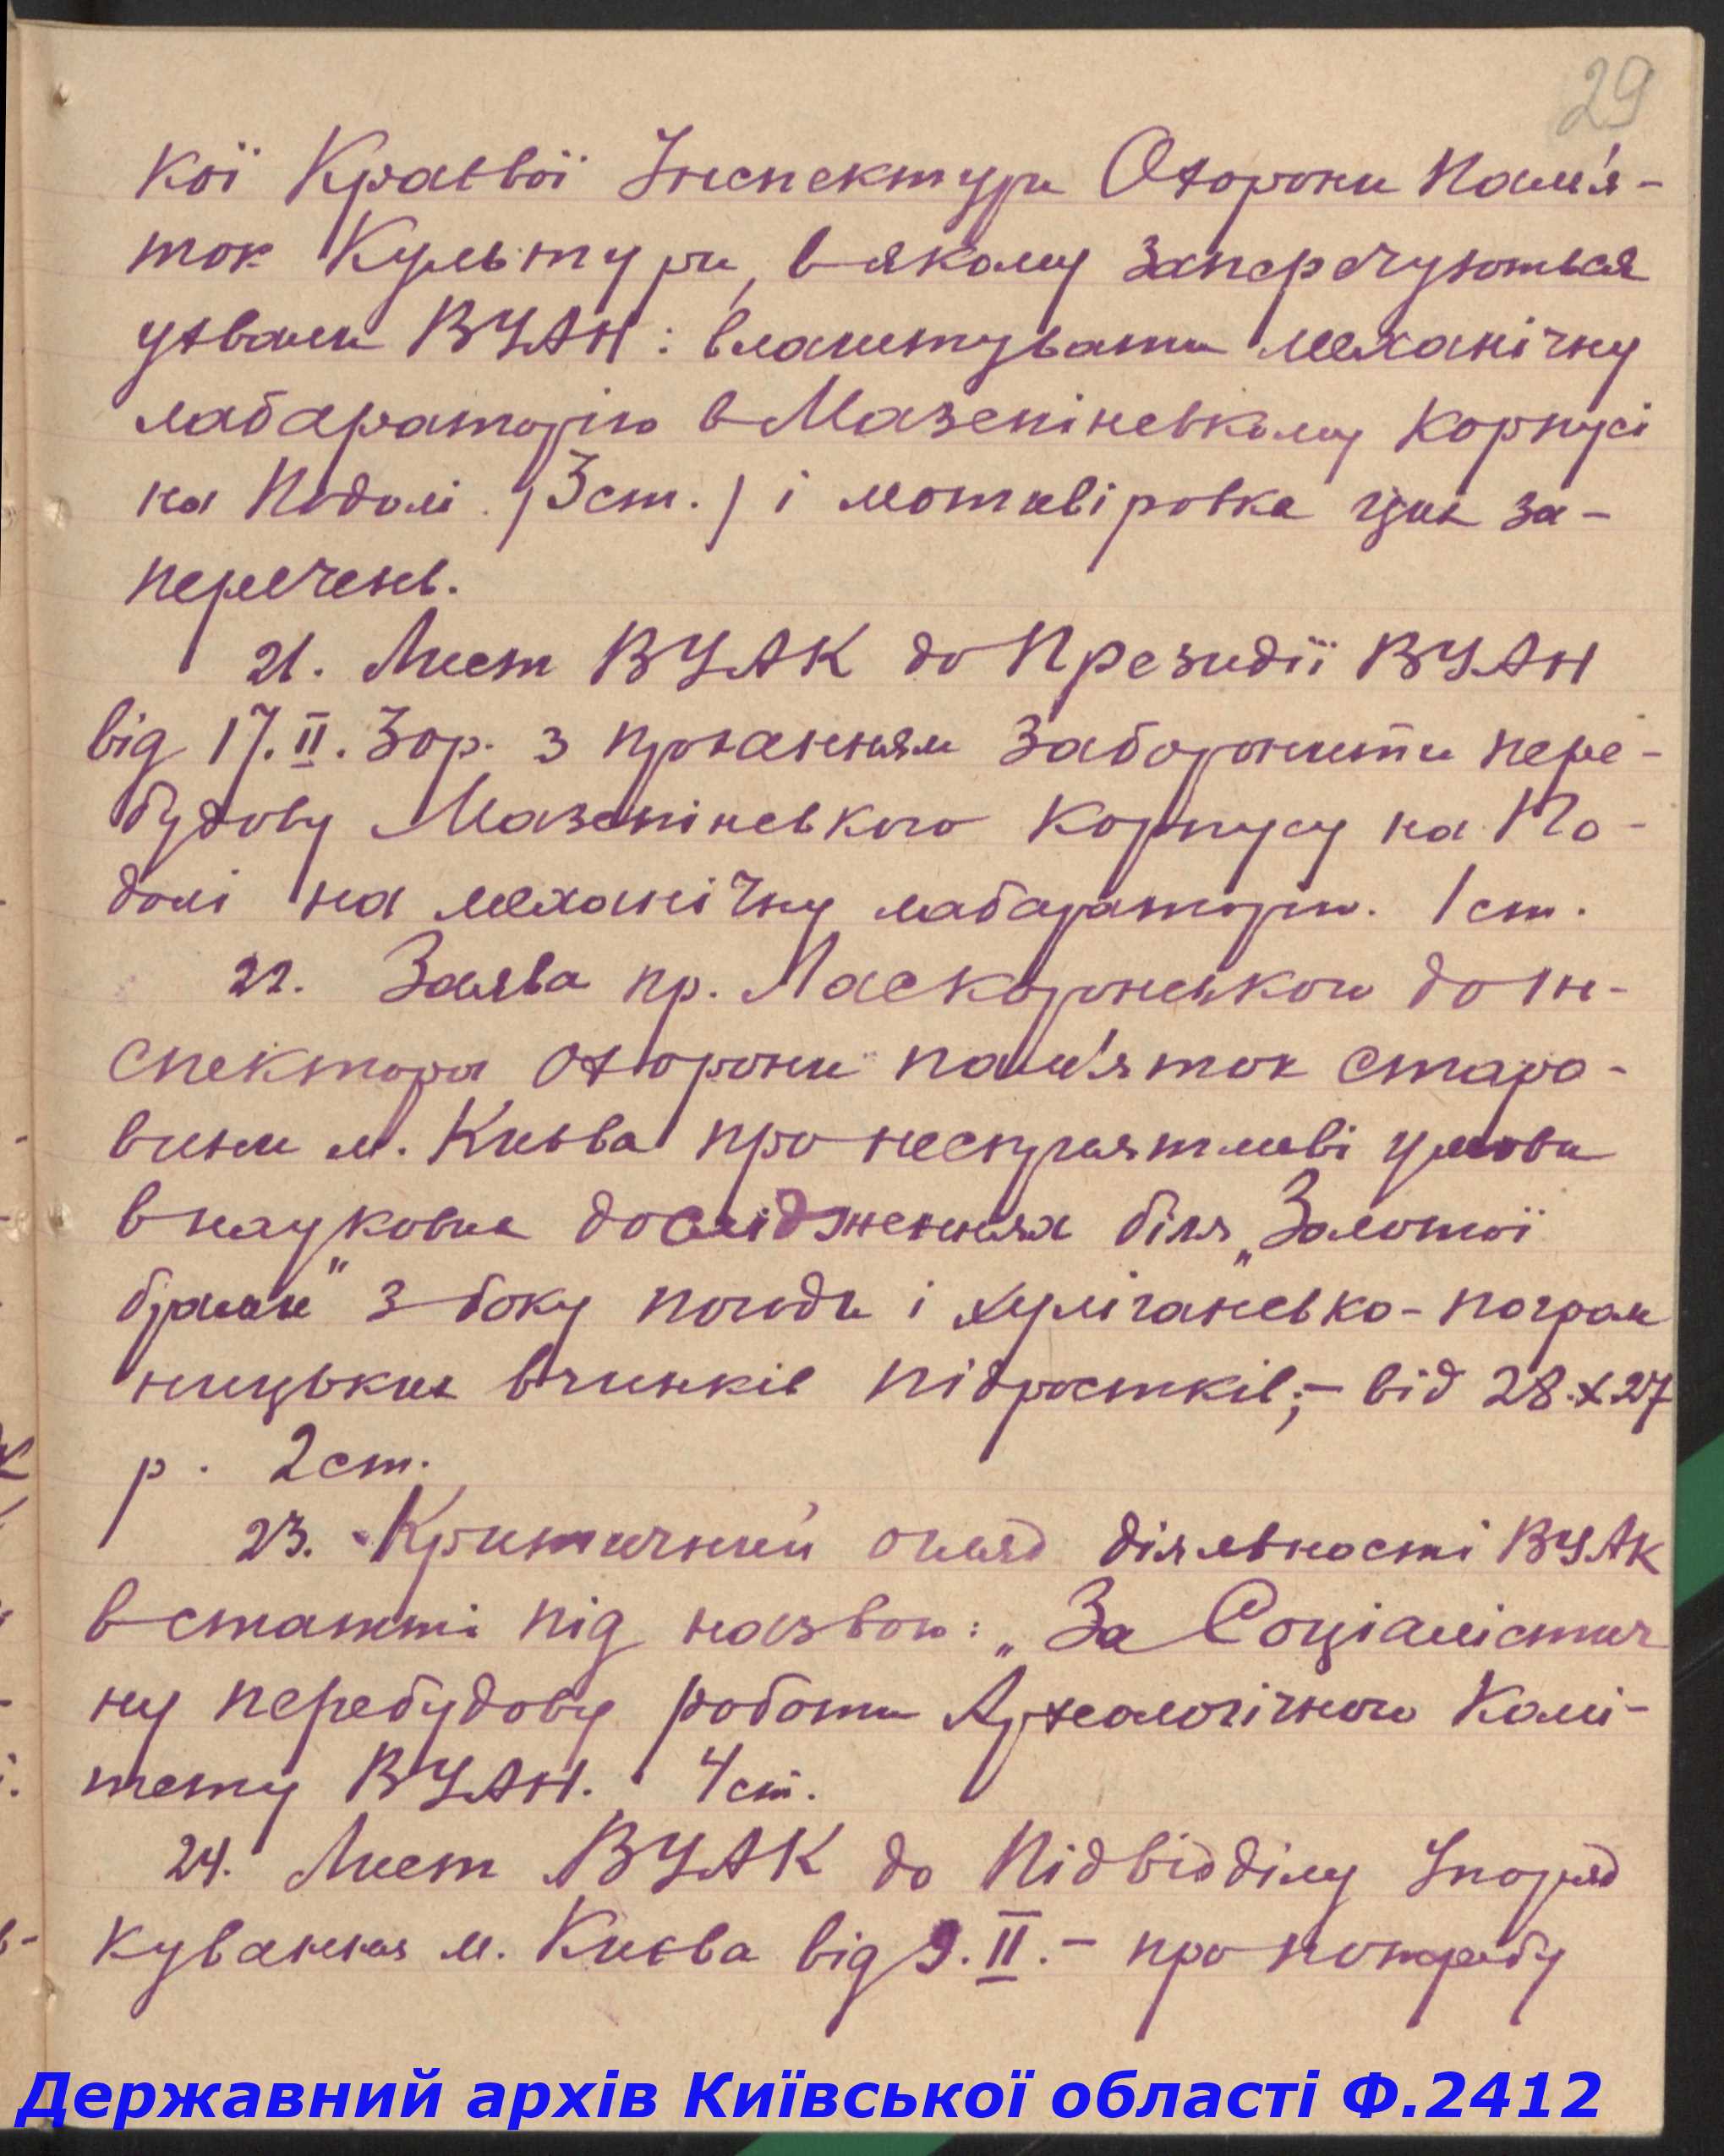 29
кої Краєвої Інспектури Охорони Пам'я-
ток Культури, в якому заперечуються
ухвали ВУАН: влаштувати механічну
лабараторію в Мазепінському корпусі
на Подолі (3 ст.) і мотивіровка цих за-
перечень.
21. Лист ВУАК до Президії ВУАН
від 17.II.30р. з проханням заборонити пере-
будову Мазепінського корпусу на По-
долі на механічну лабараторію. 1 ст.
22. Заява пр. Ласкоронського до Ін-
спектора охорони пам'яток старо-
вини м. Києва про несприятливі умови
в наукових дослідженнях біля „Золотої
брами" з боку погоди і хулігансько-погром
ницьких вчинків підростків; – від 28.X.27
р. 2 ст.
23. Критичний огляд діяльності ВУАК
в статті під назвою: „За Соціалістич
ну перебудову роботи Археологічного Комі-
тету ВУАН. 4 ст.
24. Лист ВУАК до Підвідділу Упоряд
кування м. Києва від 9.II. – про потребу
Державний архів Київської області Ф.2412